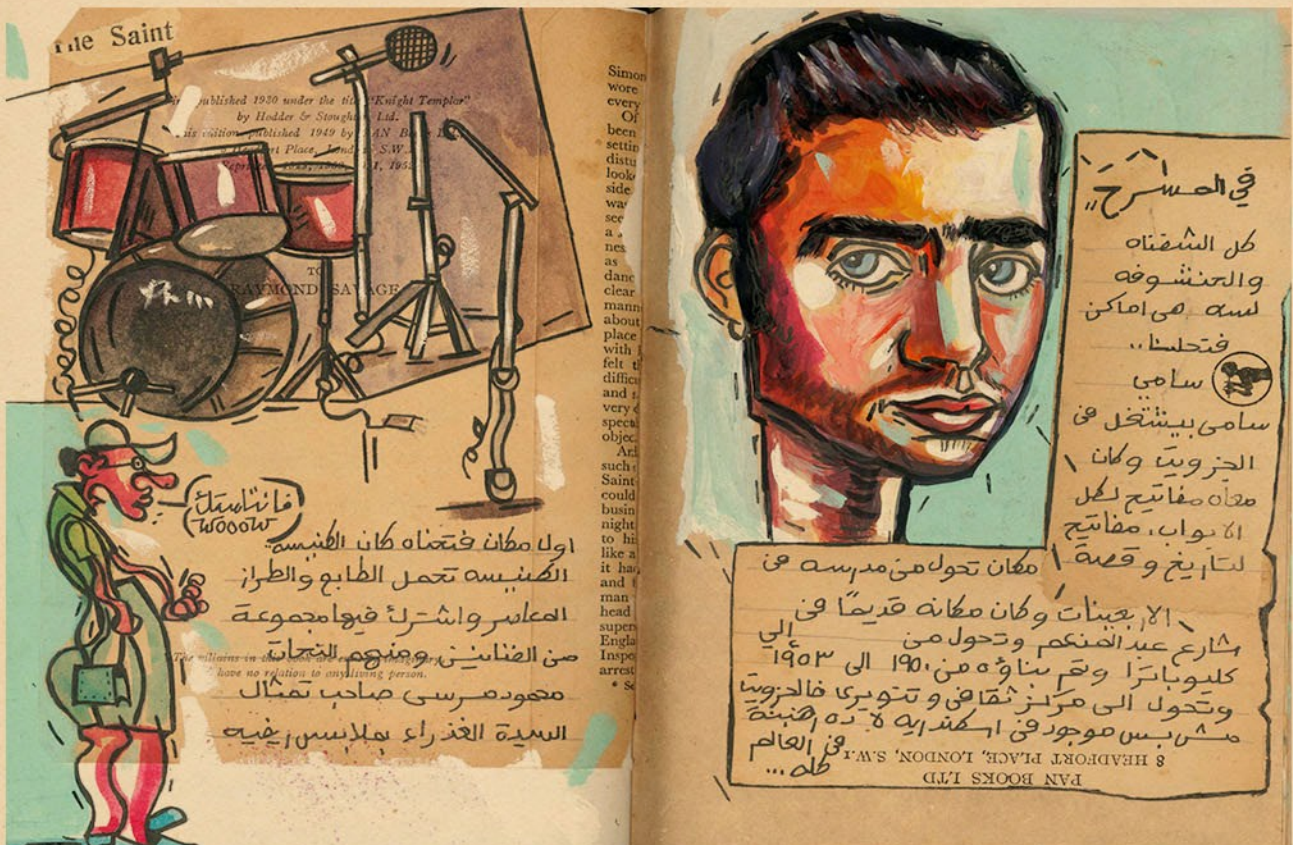 The Saint
published 1930 under the title "Knight Templar"
by Hodder & Stoughton Ltd.
edition published 1949 by PAN
Place,
S.W.
TO
RAYMOND SAVAGE
فانتاستك
WOOOW
اول مكان فتحناه كان الكنيسه
الكنيسه تحمل الطابع والطراز
المعاصر واشترك فيها مجموعة
من الفنانين ومنهم النحات
The villains in this book are
have no relation to any living person.
محمود مرسى صاحب تمثال
السيدة العذراء بملابس ريفيه
Simon
wore
every
Of
been
settin
distu
look
side
was
see
a
nes
as
danc
clear
mann
about
place
with
felt t
diffic
and
very
spect
objec
such
Saint
could
busin
night
to hi
like a
it had
and
man
head
super
Engla
Inspe
arrest
في المسرح،،
كل الشفناه
والحنشوفه
لسه هى اماكن
فتحلنا،،
سامي
سامى بيشتغل فى
الجزويت وكان
معاه مفاتيح لكل
الابواب، مفاتيح
لتاريخ وقصة
مكان تحول من مدرسه فى
الاربعينات وكان مكانه قديمًا فى
شارع عبد المنعم وتحول من إلي
كليوباترا وتم بناؤه من ١٩٥٠ الى ١٩٥٣
وتحول الى مركز ثقافى وتنويرى فالجزويت
مش بس موجود فى اسكندريه لا ده
فى العالم
كله...
8 HEADFORT PLACE, LONDON, S.W.1
PAN BOOKS LTD